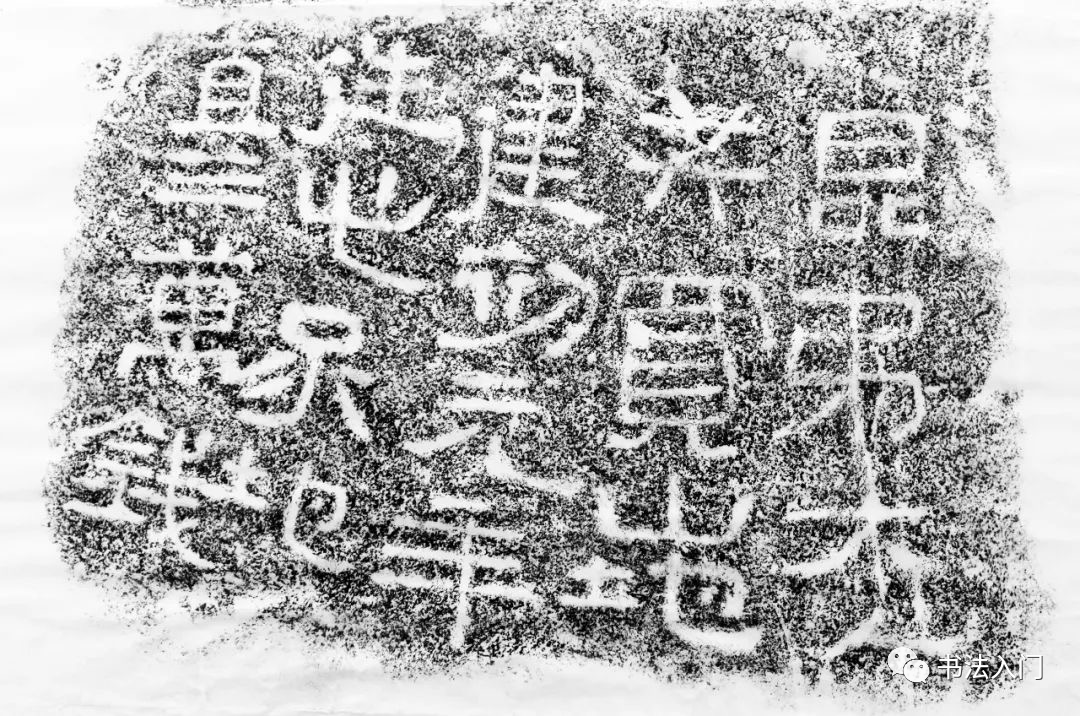 昆弟六人
共買山地
建初元年
造此冢地
直三萬錢
书法入门